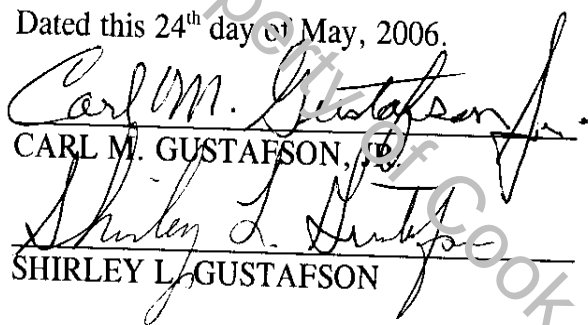 Dated this 24th day of May, 2006.
Carl M. Gustafson Jr.
CARL M. GUSTAFSON, JR.
Shirley L. Gustafson
SHIRLEY L. GUSTAFSON
perty of Cook